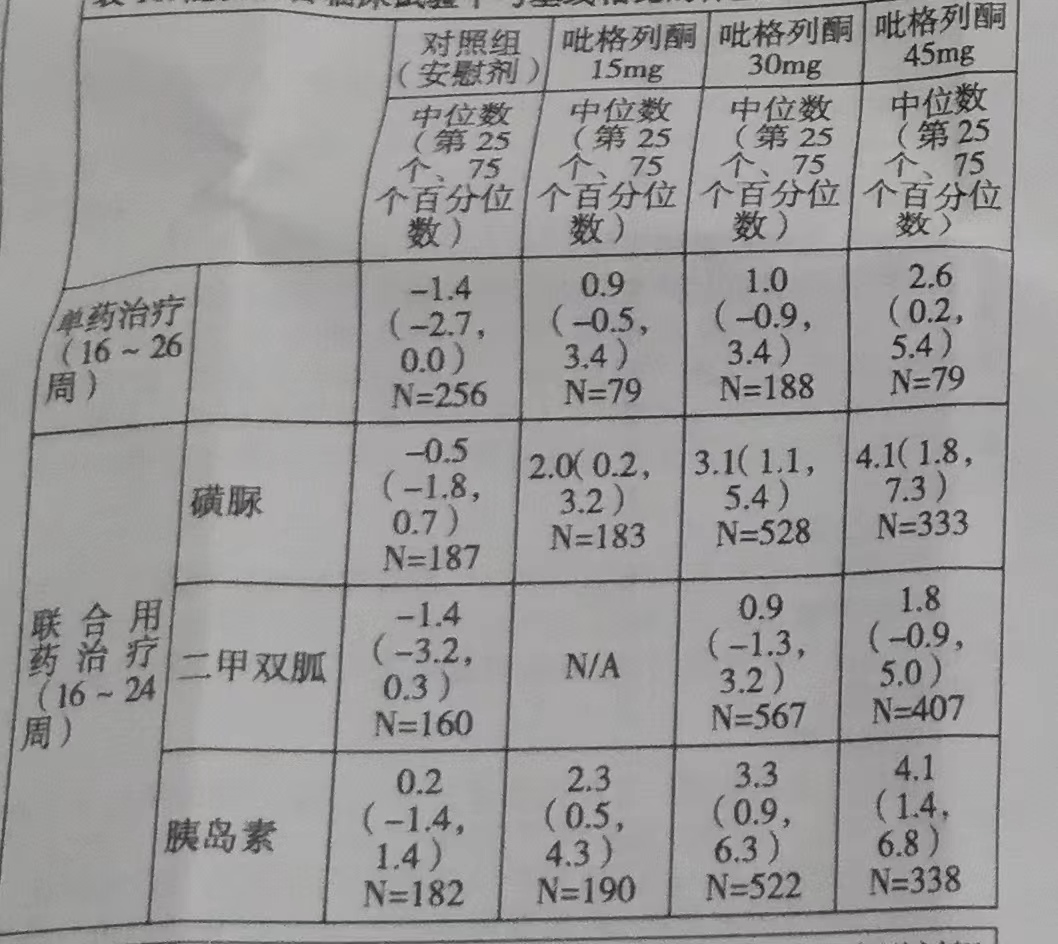 对照组
（安慰剂）
吡格列酮
15mg
吡格列酮
30mg
吡格列酮
45mg
中位数
（第 25
个、75
个百分位
数）
中位数
（第 25
个、75
个百分位
数）
中位数
（第 25
个、75
个百分位
数）
中位数
（第 25
个、75
个百分位
数）
单药治疗
（16 ~ 26
周）
-1.4
（-2.7,
0.0）
N=256
0.9
（-0.5,
3.4）
N=79
1.0
（-0.9,
3.4）
N=188
2.6
（0.2,
5.4）
N=79
联合用
药治疗
（16 ~ 24
周）
磺脲
-0.5
（-1.8,
0.7）
N=187
2.0（0.2,
3.2）
N=183
3.1（1.1,
5.4）
N=528
4.1（1.8,
7.3）
N=333
二甲双胍
-1.4
（-3.2,
0.3）
N=160
N/A
0.9
（-1.3,
3.2）
N=567
1.8
（-0.9,
5.0）
N=407
胰岛素
0.2
（-1.4,
1.4）
N=182
2.3
（0.5,
4.3）
N=190
3.3
（0.9,
6.3）
N=522
4.1
（1.4,
6.8）
N=338